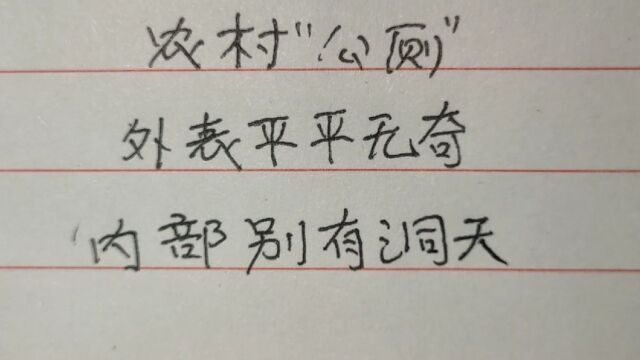 农村“公厕”
外表平平无奇
内部别有洞天